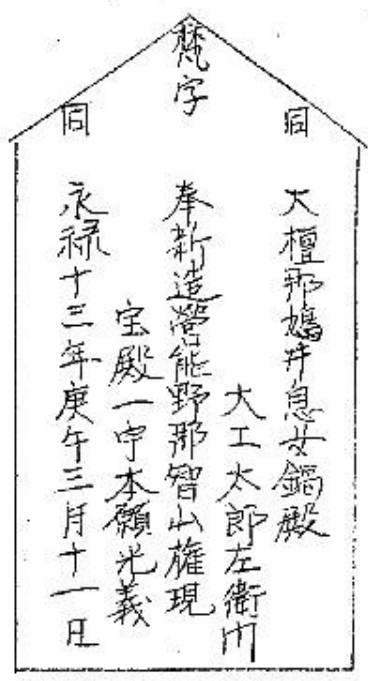 梵字
同
同
大檀那鳩井息女鍋殿
大工太郎左衛門
奉新造営能野那智山権現
宝殿一宇本願光義
永禄十三年庚午三月十一日